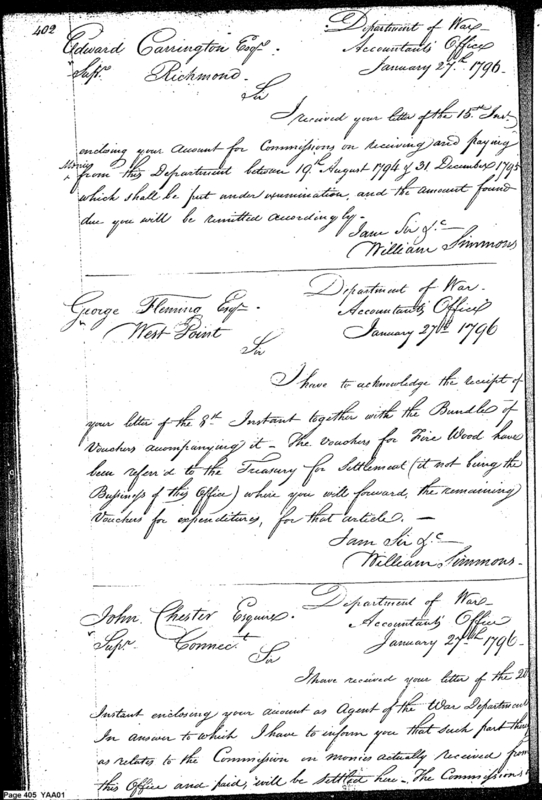 402
Department of War
Edward Carrington Esqr.
Accountants Office
Supr. Richmond.
January 27th 1796.
Sir
I received your letter of the 15th Inst
enclosing your Account for Commissions on receiving and paying
Monies
from this Department between 19th August 1794 & 31 December 1795
which shall be put under examination, and the amount found
due you will be remitted accordingly.
I am Sir &c
William Simmons
Department of War.
George Fleming Esqr.
Accountants Office
West Point
January 27th 1796
Sir
I have to acknowledge the receipt of
your letter of the 8th Instant together with the Bundle of
Vouchers acompanying it - The Vouchers for Fire Wood have
been referr'd to the Treasury for Settlement (it not being the
Business of this Office) where you will forward, the remaining
Vouchers for expenditures, for that article. -
I am Sir &c
William Simmons.
Department of War
John Chester Esquire.
Accountants Office
Supr. Connect.
January 27th 1796.
Sir
I have received your letter of the 20
Instant enclosing your account as Agent of the War Department
In answer to which I have to inform you that such part there
as relates to the Commission on monies actually received from
this Office and paid, will be settled here - The Commissions
Page 405 YAA01